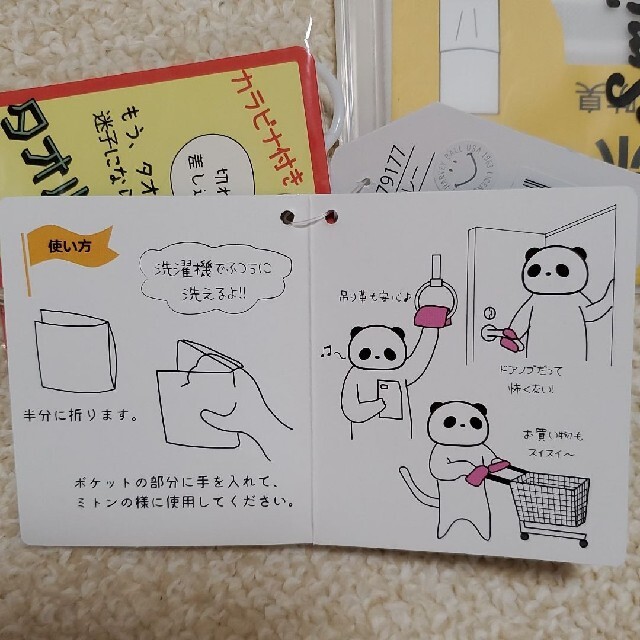 カラビナ付き
タオル
もう、タオ
迷子にな
切
差し
防臭
79177
使い方
洗濯機でふつうに
洗えるよ!!
半分に折ります。
ポケットの部分に手を入れて、
ミトンの様に使用してください。
吊り革も安心♪
ドアノブだって
怖くない!
お買い物も
スイスイ〜